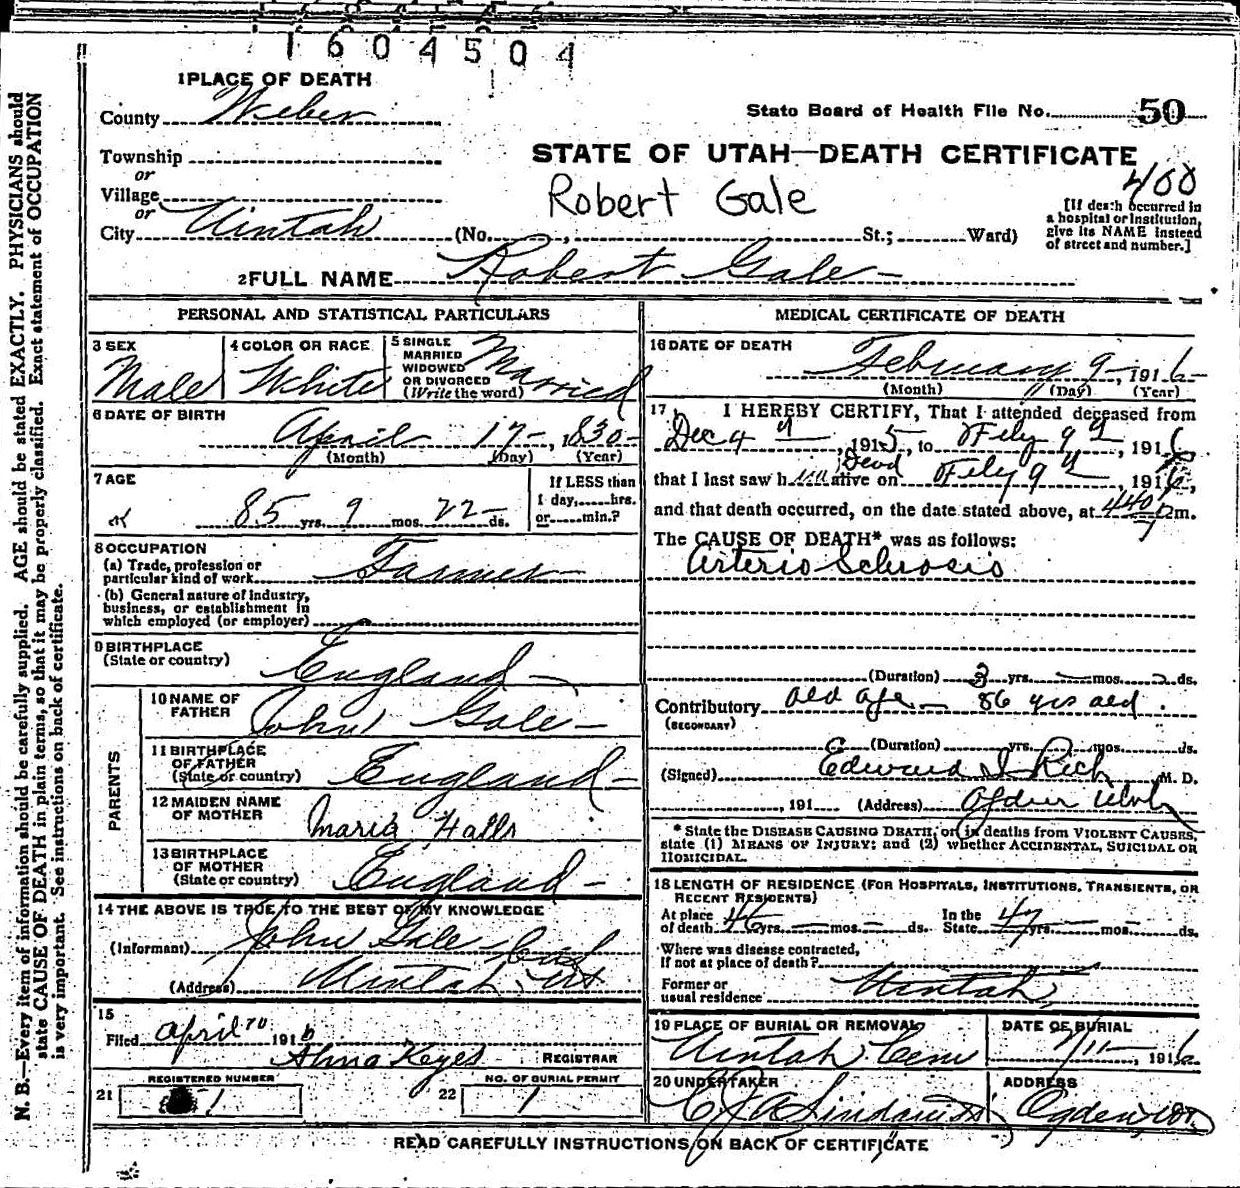 1604504
1 PLACE OF DEATH
County Weber
State Board of Health File No. 50
Township
or
Village
or
City Uintah
STATE OF UTAH—DEATH CERTIFICATE
400
Robert Gale
(No. , St.; Ward)
[If death occurred in
a hospital or institution,
give its NAME instead
of street and number.]
2 FULL NAME Robert Gale
PERSONAL AND STATISTICAL PARTICULARS
3 SEX
Male
4 COLOR OR RACE
White
5 SINGLE
MARRIED
WIDOWED
OR DIVORCED
(Write the word)
Married
6 DATE OF BIRTH
April 17-, 1830-
(Month) (Day) (Year)
7 AGE
85 yrs. 9 mos. 22 ds.
If LESS than
1 day, hrs.
or min.?
8 OCCUPATION
(a) Trade, profession or
particular kind of work Farmer
(b) General nature of industry,
business, or establishment in
which employed (or employer)
9 BIRTHPLACE
(State or country) England
PARENTS
10 NAME OF
FATHER John Gale
11 BIRTHPLACE
OF FATHER
(State or country) England
12 MAIDEN NAME
OF MOTHER Maria Halls
13 BIRTHPLACE
OF MOTHER
(State or country) England
14 THE ABOVE IS TRUE TO THE BEST OF MY KNOWLEDGE
(Informant) John Gale
(Address) Uintah, Ut
15
Filed April 10 1916
Alma Keyes REGISTRAR
REGISTERED NUMBER
21 1
NO. OF BURIAL PERMIT
22 1
MEDICAL CERTIFICATE OF DEATH
16 DATE OF DEATH
February 9-, 1916-
(Month) (Day) (Year)
17 I HEREBY CERTIFY, That I attended deceased from
Dec 4, 1915, to Feby 9, 1916
Dead
that I last saw him alive on Feby 9, 1916,
and that death occurred, on the date stated above, at 440 m.
The CAUSE OF DEATH* was as follows:
Arterio Sclrosis
(Duration) 3 yrs. mos. ds.
Contributory old age — 86 yrs old.
(SECONDARY)
(Duration) yrs. mos. ds.
(Signed) Edward I Rich M. D.
, 191 (Address) Ogden Utah
* State the DISEASE CAUSING DEATH, or in deaths from VIOLENT CAUSES,
state (1) MEANS OF INJURY; and (2) whether ACCIDENTAL, SUICIDAL OR
HOMICIDAL.
18 LENGTH OF RESIDENCE (FOR HOSPITALS, INSTITUTIONS, TRANSIENTS, OR
RECENT RESIDENTS)
At place
of death 46 yrs. mos. ds.
In the
State 47 yrs. mos. ds.
Where was disease contracted,
If not at place of death?
Former or
usual residence Uintah
19 PLACE OF BURIAL OR REMOVAL
Uintah Cem
DATE OF BURIAL
2/11, 1916
20 UNDERTAKER
ADDRESS
Ogden Ut.
READ CAREFULLY INSTRUCTIONS ON BACK OF CERTIFICATE
N. B.—Every item of information should be carefully supplied. AGE should be stated EXACTLY. PHYSICIANS should
state CAUSE OF DEATH in plain terms, so that it may be properly classified. Exact statement of OCCUPATION
is very important. See instructions on back of certificate.